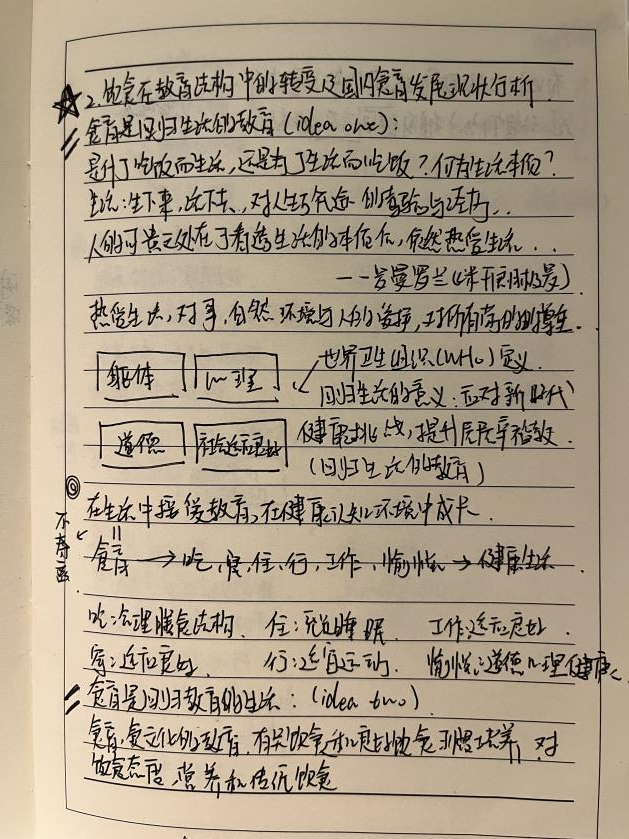 2.饮食在教育结构中的转变及国内食育发展现状分析.
食育是回归生活的教育(idea one):
是为了吃饭而生活,还是为了生活而吃饭?何为生活本质?
生活:生下来,活下去,对人生与命运的与..
人的可贵之处在于看透生活的本质后,依然热爱生活...
——罗曼罗兰《米开朗基罗》
热爱生活,对事,自然环境与人的,对所有的尊重.
躯体 心理
世界卫生组织(WHO)定义.
回归生活的意义:应对新时代
道德 社会适应良好
健康挑战,提升居民幸福数.
(回归生活的教育)
在生活中接受教育,在健康认知环境中成长.
不
食育→吃,穿,住,行,工作,愉悦→健康生活.
吃:合理膳食结构. 住:睡眠. 工作:适应良好.
穿:适应良好. 行:适宜运动. 愉悦:道德心理健康.
食育是回归教育的生活:(idea two)
食育,食文化的教育.有关饮食和良好饮食习惯培养,对
饮食态度、营养和传统饮食